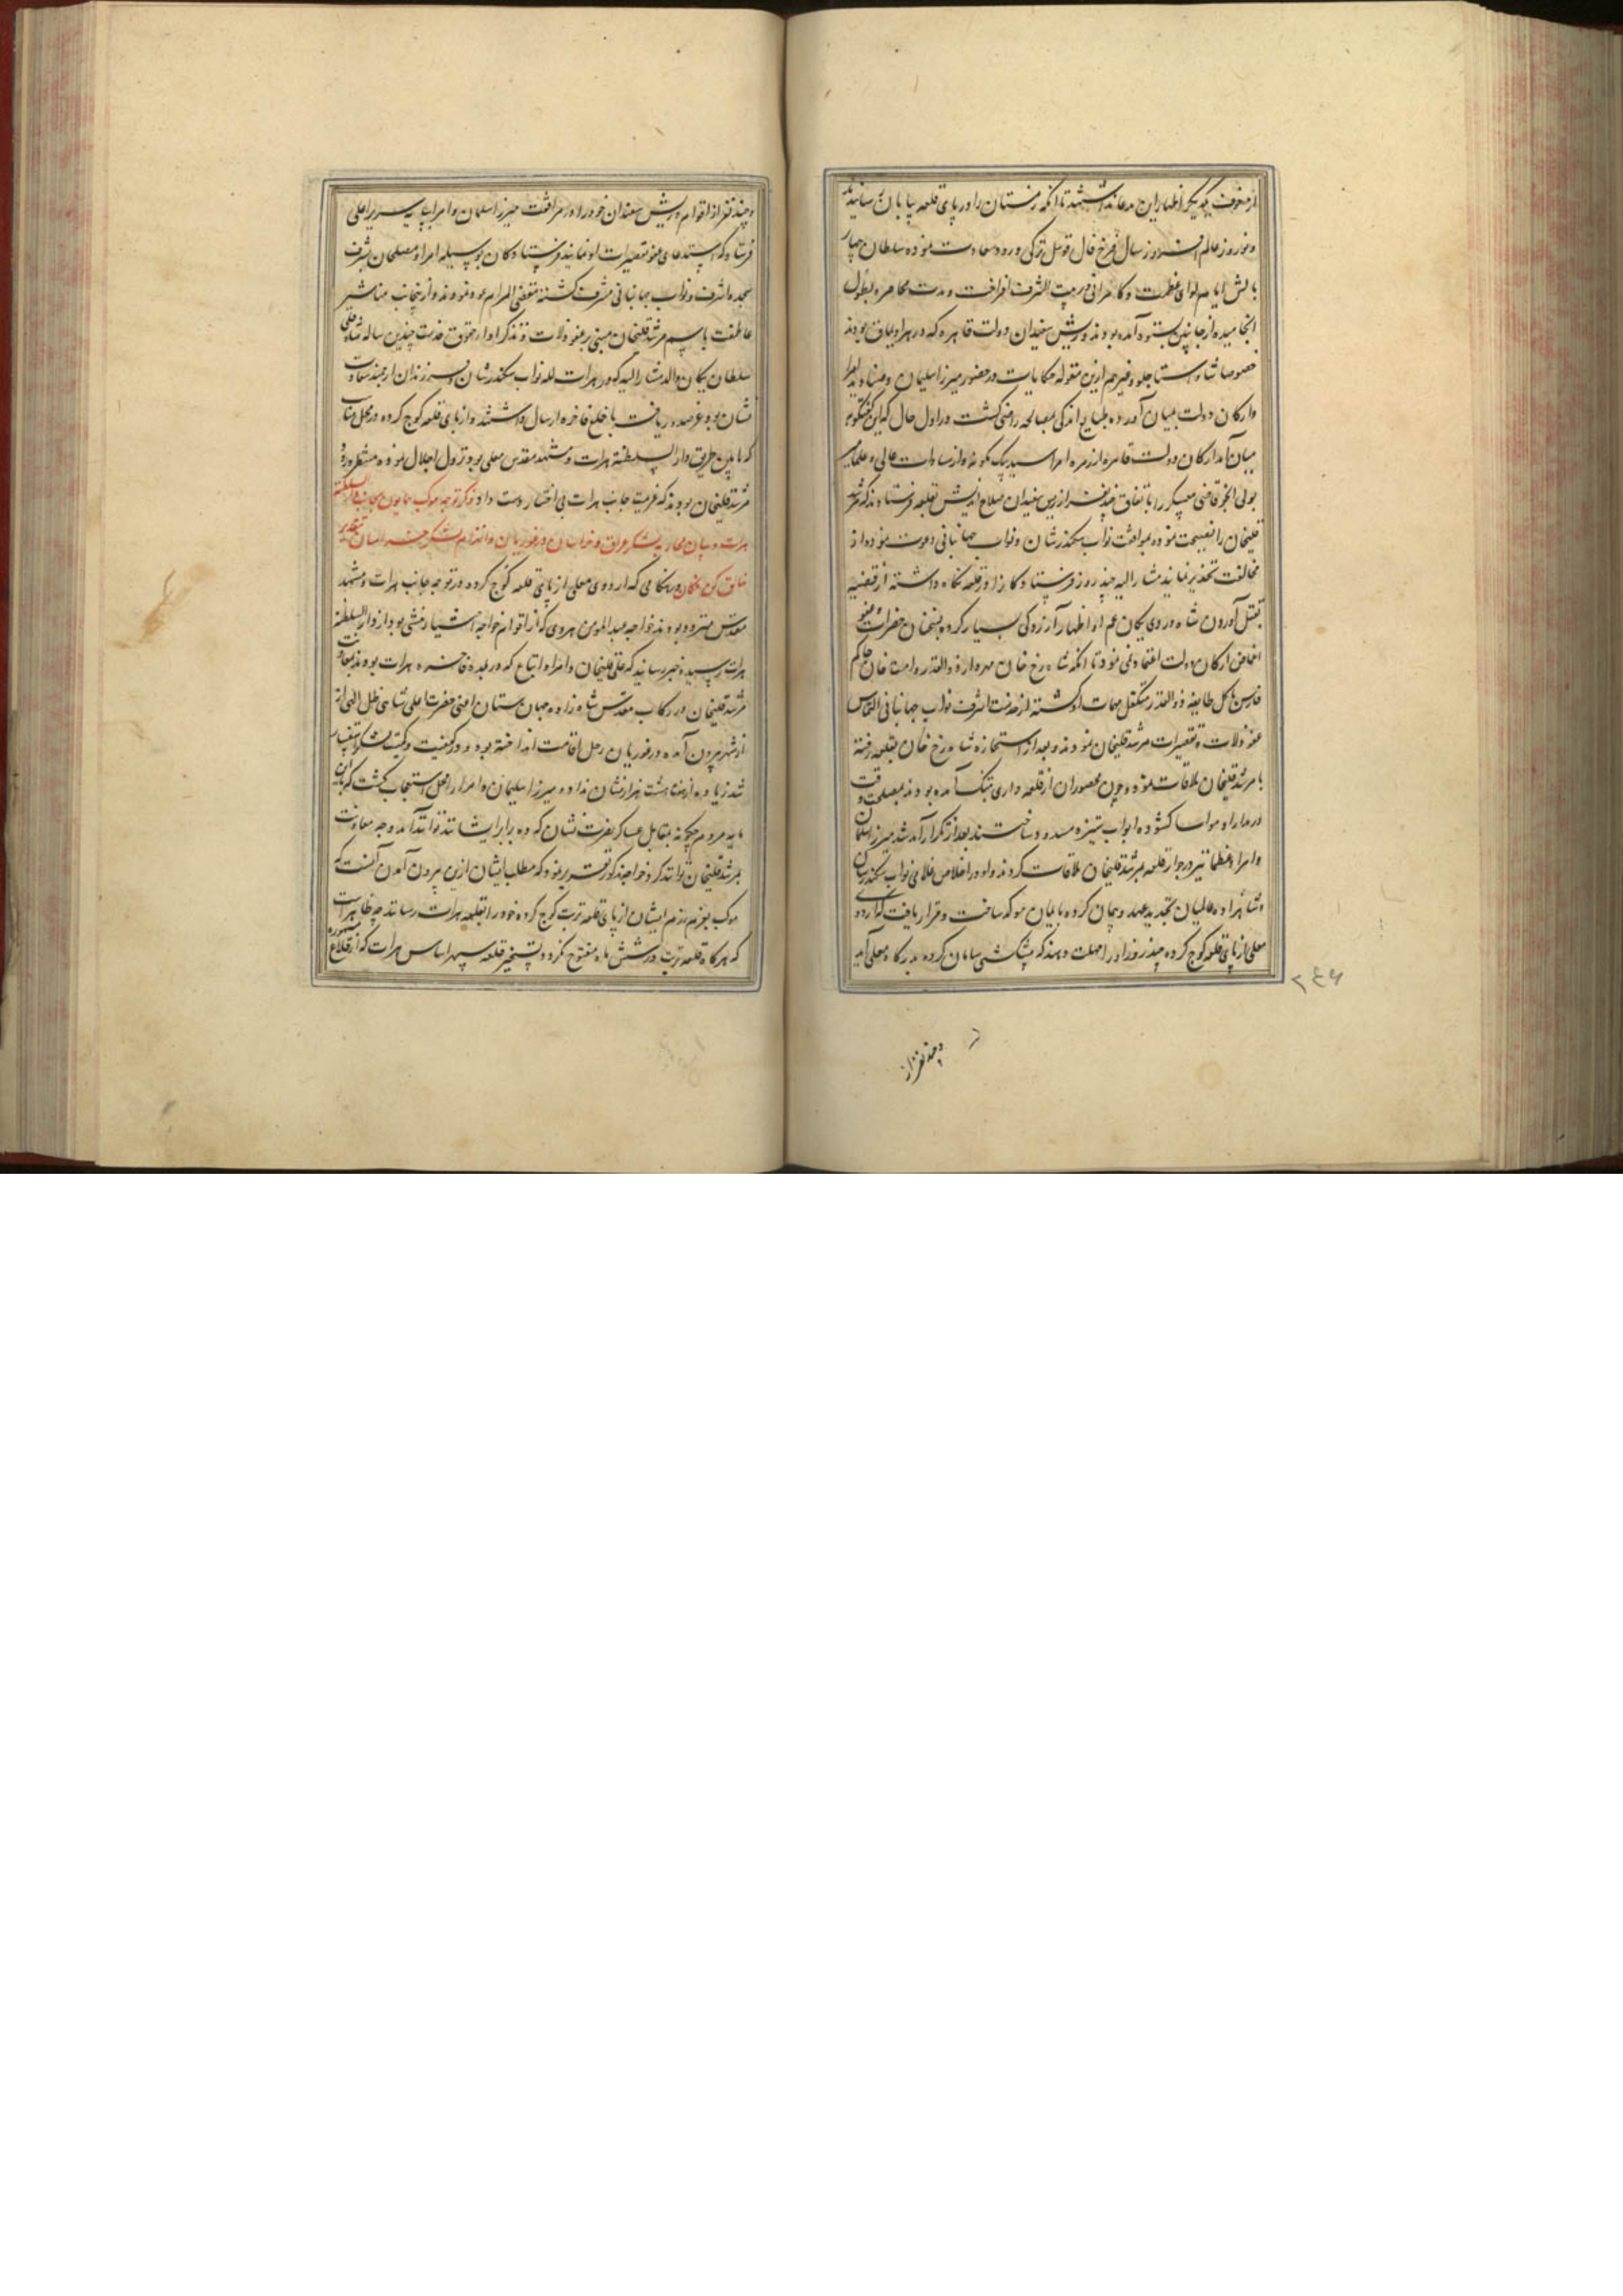 از خوف یکدیگر اظهار این مدعا نداشتند تا آنکه زمستان را در پای قلعه بپایان رسانیدند
و نوروز عالم افروز سال فرخ فال قوی ئیل ترکی ورود سعادت نموده سلطان چهار
بالش ایام لوای عظمت و کامرانی در بیت الشرف افراخت و مدت محاصره بطول
انجامیده از جانبین بستوه آمده بودند و ریش سفیدان دولت قاهره که در هر اویماق بودند
خصوصا شاملو و استاجلو و غیرهم ازین مقوله حکایات در حضور میرزا سلیمان و امرا
و ارکان دولت بمیان آورده طبایع اندکی بمصالحه راضی گشت در اول حال که این گفتگو در
میان آمد ارکان دولت قاهره از زمره امرا سید بیک کمونه و از سادات عالی و علما میر
قاضی معسکر را باتفاق چند نفر از ریش سفیدان صلاح اندیش بقلعه فرستادند که مرشد
قلیخان را نصیحت نموده بموافقت نواب سکندر شان و نواب جهانبانی دعوت نموده از
مخالفت تحذیر نمایند مشار الیه چند روز فرستادکان را در قلعه نگاه داشته از قضیه
بقتل آوردن شاه وردی یکان عم او اظهار آزردکی بسیار کرده بسخنان حضرات
ارکان دولت اعتماد نمی نمود تا آنکه شاه رخ خان مهردار ذوالقدر و امت خان حاکم
فارس که کل طایفه ذوالقدر متکفل مهمات او گشته از خدمت اشرف نواب جهانبانی التماس
عفو زلات و تقصیرات مرشد قلیخان نمودند و بعد از استجازه شاه رخ خان بقلعه رفته
با مرشد قلیخان ملاقات نمود و چون محصوران از قلعه داری بتنگ آمده بودند بمصلحت وقت
در مدارا و مواسا گشوده ابواب ستیزه مسدود ساختند بعد از تکرار آمد شد میرزا سلمان
و امراء عظام نیز در جوار قلعه بمرشد قلیخان ملاقات کردند و او در اخلاص غلامی نواب سکندر شان
و شاهزاده عالمیان تجدید عهد و پیمان کرده بایمان موکد ساخت و قرار یافت که اردوی
معلی از پای قلعه کوچ کرده چند روز او را مهلت دهند که پیشکشی سامان کرده بدرگاه معلی آید
۲۴۶
و چند نفر از
و چند نفر از اقوام و ریش سفیدان خود را در مرافقت میرزا سلمان و امرا بپایه سریر اعلی
فرستاد که استدعای عفو تقصیرات او نمایند فرستادکان بوسیله امرا و مصلحان بشرف
سجده اشرف و نواب جهانبانی مشرف گشته مقضی المرام عود نمودند و از آنجانب مناشیر
عاطفت باسم مرشد قلیخان مبنی بر عفو زلات و تذکار او از حقوق خدمت چندین ساله شاه قلی
سلطان یکان والد مشار الیه که در هرات لله نواب سکندر شان و فرزندان ارجمند سعادت
نشان بود عز صدور یافت با خلع فاخره ارسال داشتند و از پای قلعه کوچ کرده در محل مناسب
که مابین طریق دار السلطنة هرات و مشهد مقدس معلی بود نزول اجلال نموده منتظر ورود
مرشد قلیخان بودند که عزیمت جانب هرات بی اختیار دست داد ذکر توجه موکب همایون بجانب دار السلطنة
هرات و بیان محاربه لشکر عراق و خراسان در غوریان و انهزام لشکر خراسان بتقدیر
خالق کن فکان در هنگامی که اردوی معلی از پای قلعه کوچ کرده در توجه جانب هرات و مشهد
مقدس متردد بودند خواجه عبد المومن هروی که از اقوام خواجه اختیار منشی بود از دار السلطنة
هرات رسیده خبر رسانید که علی قلیخان و امرا و اتباع که در بلده فاخره هرات بودند بمعاونت
مرشد قلیخان در رکاب مقدس شاهزاده جهان ستان اعنی حضرت اعلی شاهی ظل اللهی از
از شهر بیرون آمده در غوریان رحل اقامت انداخته بود و در کیفیت و کمیت لشکر استفسار
شد زیاده از هفت هشت هزار نشان نداده میرزا سلیمان و امرا را محل استعجاب گشت که باین
مایه مردم چگونه بمقابل عساکر نصرت نشان که ده برابر ایشانند توانند آمد و چه معاونت
بمرشد قلیخان توانند کرد خواجه مذکور تقریر نمود که مطلب ایشان ازین بیرون آمدن آنست که
موکب بعزم رزم ایشان از پای قلعه تربت کوچ کرده خود را بقلعه هرات رسانند چه ظاهر است
که هرکاه قلعه تربت در شش ماه مفتوح نگردد تسخیر قلعه سپهر اساس هرات که از قلاع مشهوره